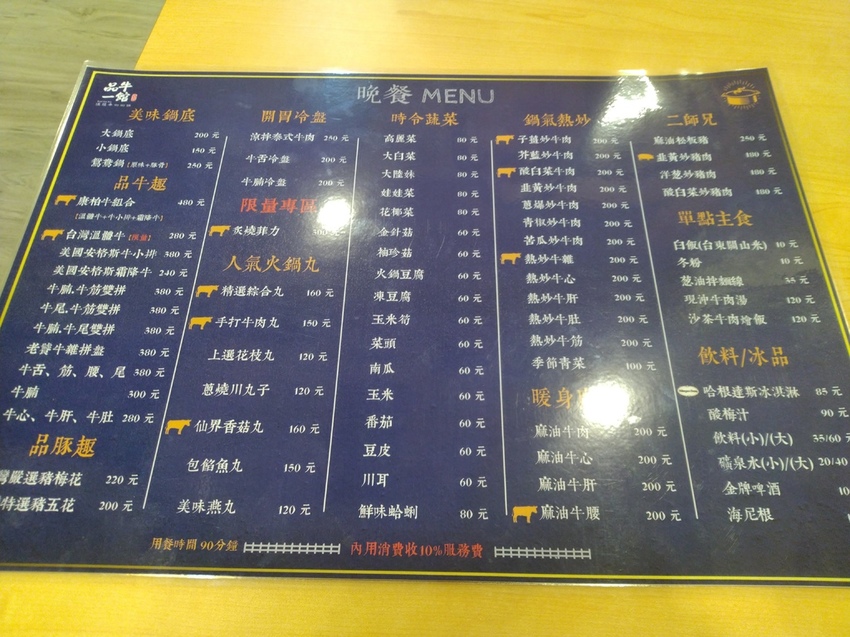 品牛一館
晚餐 MENU
美味鍋底
大鍋底 200 元
小鍋底 150 元
鴛鴦鍋 [原味+酸香] 250 元
品牛趣
康柏牛組合 480 元
[溫體牛+牛小排+霜降牛]
台灣溫體牛 [限量] 280 元
美國安格斯牛小排 380 元
美國安格斯霜降牛 240 元
牛腩,牛筋雙拼 380 元
牛尾,牛筋雙拼 380 元
牛腩,牛尾雙拼 380 元
老饕牛雜拼盤 380 元
牛舌、筋、腹、尾 380 元
牛腩 300 元
牛心、牛肝、牛肚 280 元
品豚趣
灣嚴選豬梅花 220 元
特選豬五花 200 元
開胃冷盤
涼拌泰式牛肉 250 元
牛舌冷盤 200 元
牛腩冷盤 200 元
限量專區
炙燒菲力
人氣火鍋丸
精選綜合丸 160 元
手打牛肉丸 150 元
上選花枝丸 120 元
蔥燒川丸子 120 元
仙界香菇丸 160 元
包餡魚丸 150 元
美味燕丸 120 元
時令蔬菜
高麗菜 80 元
大白菜 80 元
大陸妹 80 元
娃娃菜 80 元
花椰菜 80 元
金針菇 60 元
袖珍菇 60 元
火鍋豆腐 60 元
凍豆腐 60 元
玉米筍 60 元
菜頭 60 元
南瓜 60 元
玉米 60 元
番茄 60 元
豆皮 60 元
川耳 60 元
鮮味蛤蜊 80 元
鍋氣熱炒
子薑炒牛肉 200 元
芥藍炒牛肉 200 元
酸白菜牛肉 200 元
韭黃炒牛肉 200 元
蔥爆炒牛肉 200 元
青椒炒牛肉 200 元
苦瓜炒牛肉 200 元
熱炒牛雜 200 元
熱炒牛心 200 元
熱炒牛肝 200 元
熱炒牛肚 200 元
熱炒牛筋 200 元
季節青菜 100 元
暖身
麻油牛肉 200 元
麻油牛心 200 元
麻油牛肝 200 元
麻油牛腰 200 元
二師兄
麻油松板豬 250 元
韭黃炒豬肉 180 元
洋蔥炒豬肉 180 元
酸白菜炒豬肉 180 元
單點主食
白飯(台東關山米) 10 元
冬粉 10 元
蔥油拌麵線 35 元
現沖牛肉湯 120 元
沙茶牛肉燴飯 120 元
飲料/冰品
哈根達斯冰淇淋 85 元
酸梅汁 90 元
飲料(小)/(大) 35/60 元
礦泉水(小)/(大) 20/40
金牌啤酒
海尼根
用餐時間 90分鐘
內用消費收10%服務費